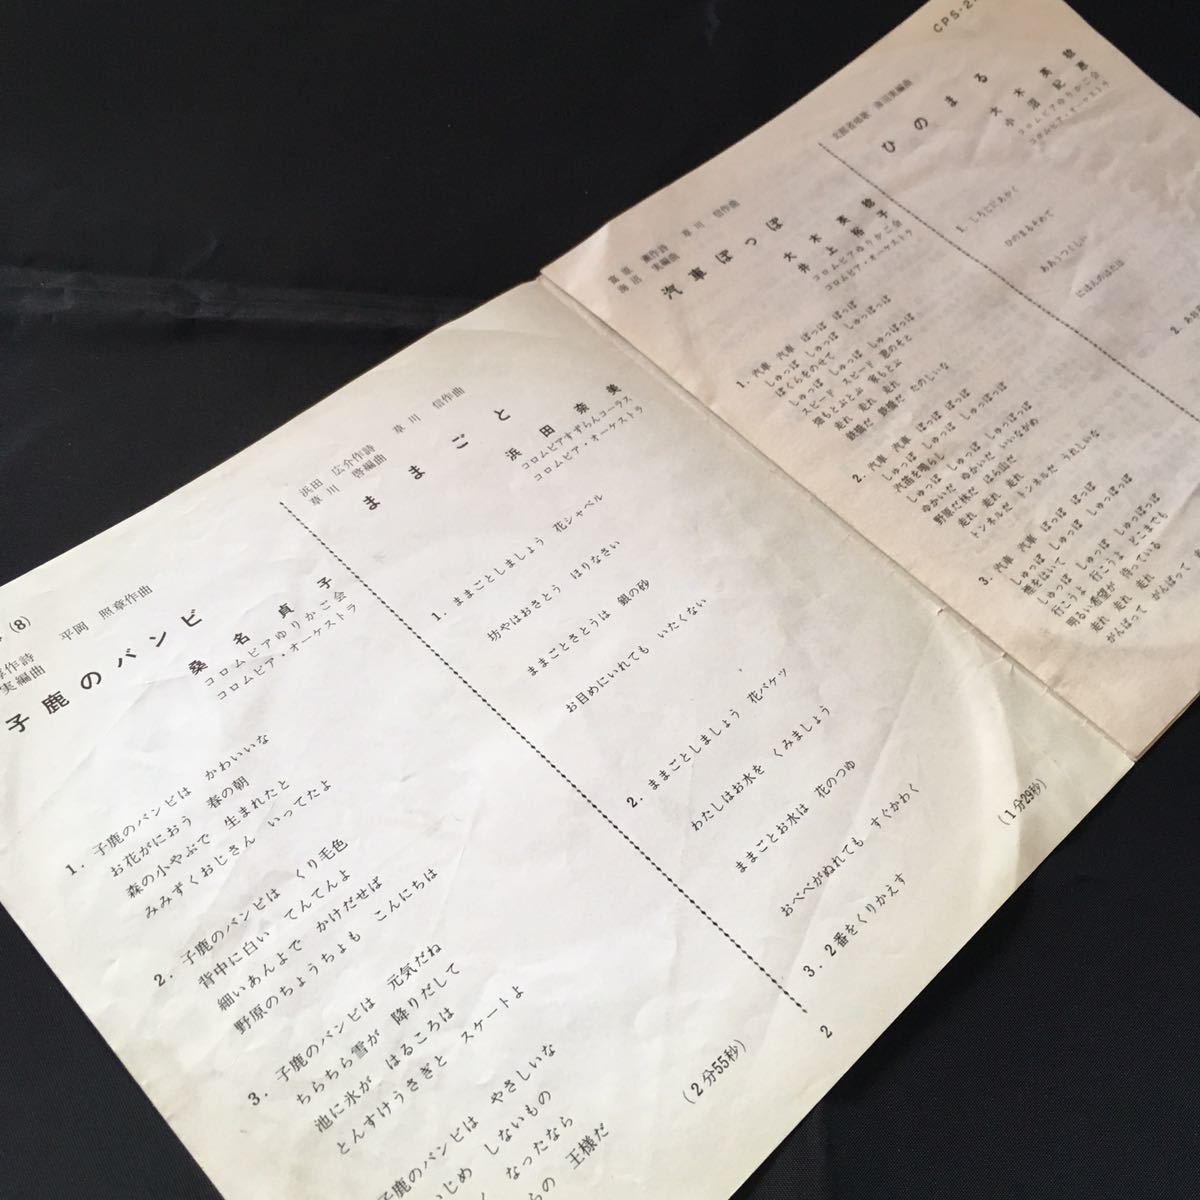 (8)
作詩 平岡 照章作曲
実編曲
子鹿のバンビ
桑名貞子
コロムビアゆりかご会
コロムビア・オーケストラ
1. 子鹿のバンビは かわいいな
お花がにおう 春の朝
森の小やぶで 生まれたと
みみずくおじさん いってたよ
2. 子鹿のバンビは くり毛色
背中に白い てんてんよ
細いあんよで かけだせば
野原のちょうちょも こんにちは
3. 子鹿のバンビは 元気だね
ちらちら雪が 降りだして
池に氷が はるころは
とんすけうさぎと スケートよ
子鹿のバンビは やさしいな
いじめ しないもの
なったなら
らの 王様だ
(2分55秒)
浜田 広介作詩 草川 信作曲
草川 啓編曲
ままごと
浜田奈美
コロムビアすずらんコーラス
コロムビア・オーケストラ
1. ままごとしましょう 花シャベル
坊やはおさとう ほりなさい
ままごとさとうは 銀の砂
お目めにいれても いたくない
2. ままごとしましょう 花バケツ
わたしはお水を くみましょう
ままごとお水は 花のつゆ
おべべがぬれても すぐかわく
3. 2番をくりかえす
(1分29秒)
2
富原 薫作詩 草川 信作曲
実編曲
汽車ぽっぽ
大木英
井上裕子
コロムビアゆりかご会
コロムビア・オーケストラ
1. 汽車 汽車 ぽっぽ ぽっぽ
しゅっぽ しゅっぽ しゅっぽっぽ
ぼくらをのせて
しゅっぽ しゅっぽ しゅっぽっぽ
スピード スピード 窓のそと
畑もとぶとぶ 家もとぶ
走れ 走れ 走れ
鉄橋だ 鉄橋だ たのしいな
2. 汽車 汽車 ぽっぽ ぽっぽ
しゅっぽ しゅっぽ しゅっぽっぽ
汽笛を鳴らし
しゅっぽ しゅっぽ しゅっぽっぽ
ゆかいだ ゆかいだ いいながめ
野原だ林だ ほら山だ
走れ 走れ 走れ
トンネルだ トンネルだ うれしいな
3. 汽車 汽車 ぽっぽ ぽっぽ
しゅっぽ しゅっぽ しゅっぽっぽ
煙をはいて
しゅっぽ しゅっぽ しゅっぽっぽ
行こうよ 行こうよ どこまでも
明るい希望が 待っている
走れ 走れ 走れ
がんばって がんばって
CPS-2
文部省唱歌 実編曲
ひのまる
大木英
小沼記恵
コロムビアゆりかご会
コロムビア・オーケストラ
1. しろじにあかく
ひのまるそめて
ああうつくしい
にほんのはたは
2.